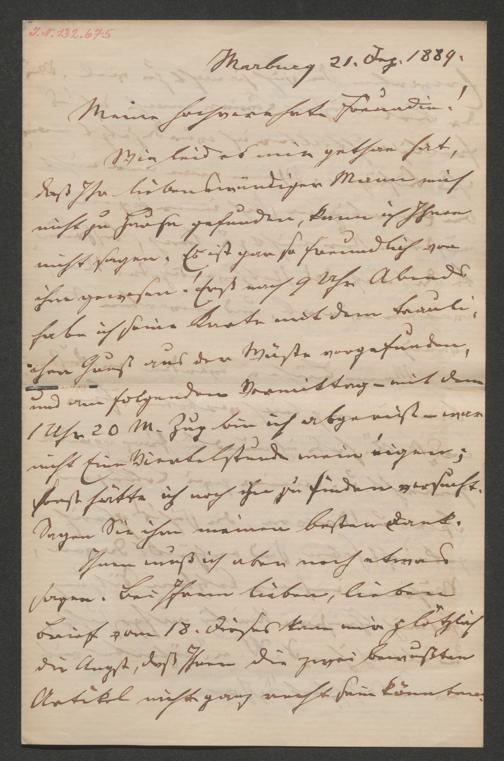 J.N. 132.675
Marburg 21. Dez. 1889.
Meine hochverehrte Freundin!
Wie leid es mir gethan hat,
daß Ihr liebenswürdiger Mann mich
nicht zu Hause gefunden, kann ich Ihnen
nicht sagen. Es ist gar so freundlich von
ihm gewesen. Erst nach 9 Uhr Abends
habe ich seine Karte mit dem trauli-
chen Gruß aus der Wüste vorgefunden,
und am folgenden Vormittag – mit dem
1 Uhr 20 M. Zug bin ich abgereist – war
nicht Eine Viertelstunde mein eigen;
sonst hätte ich noch ihn zu finden versucht.
Sagen Sie ihm meinen besten Dank.
Ihnen muß ich aber noch etwas
sagen. Bei Ihrem lieben, lieben
Brief vom 18. dieses kam mir plötzlich
die Angst, daß Ihnen die zwei bewußten
Artikel nicht ganz recht sein könnten.